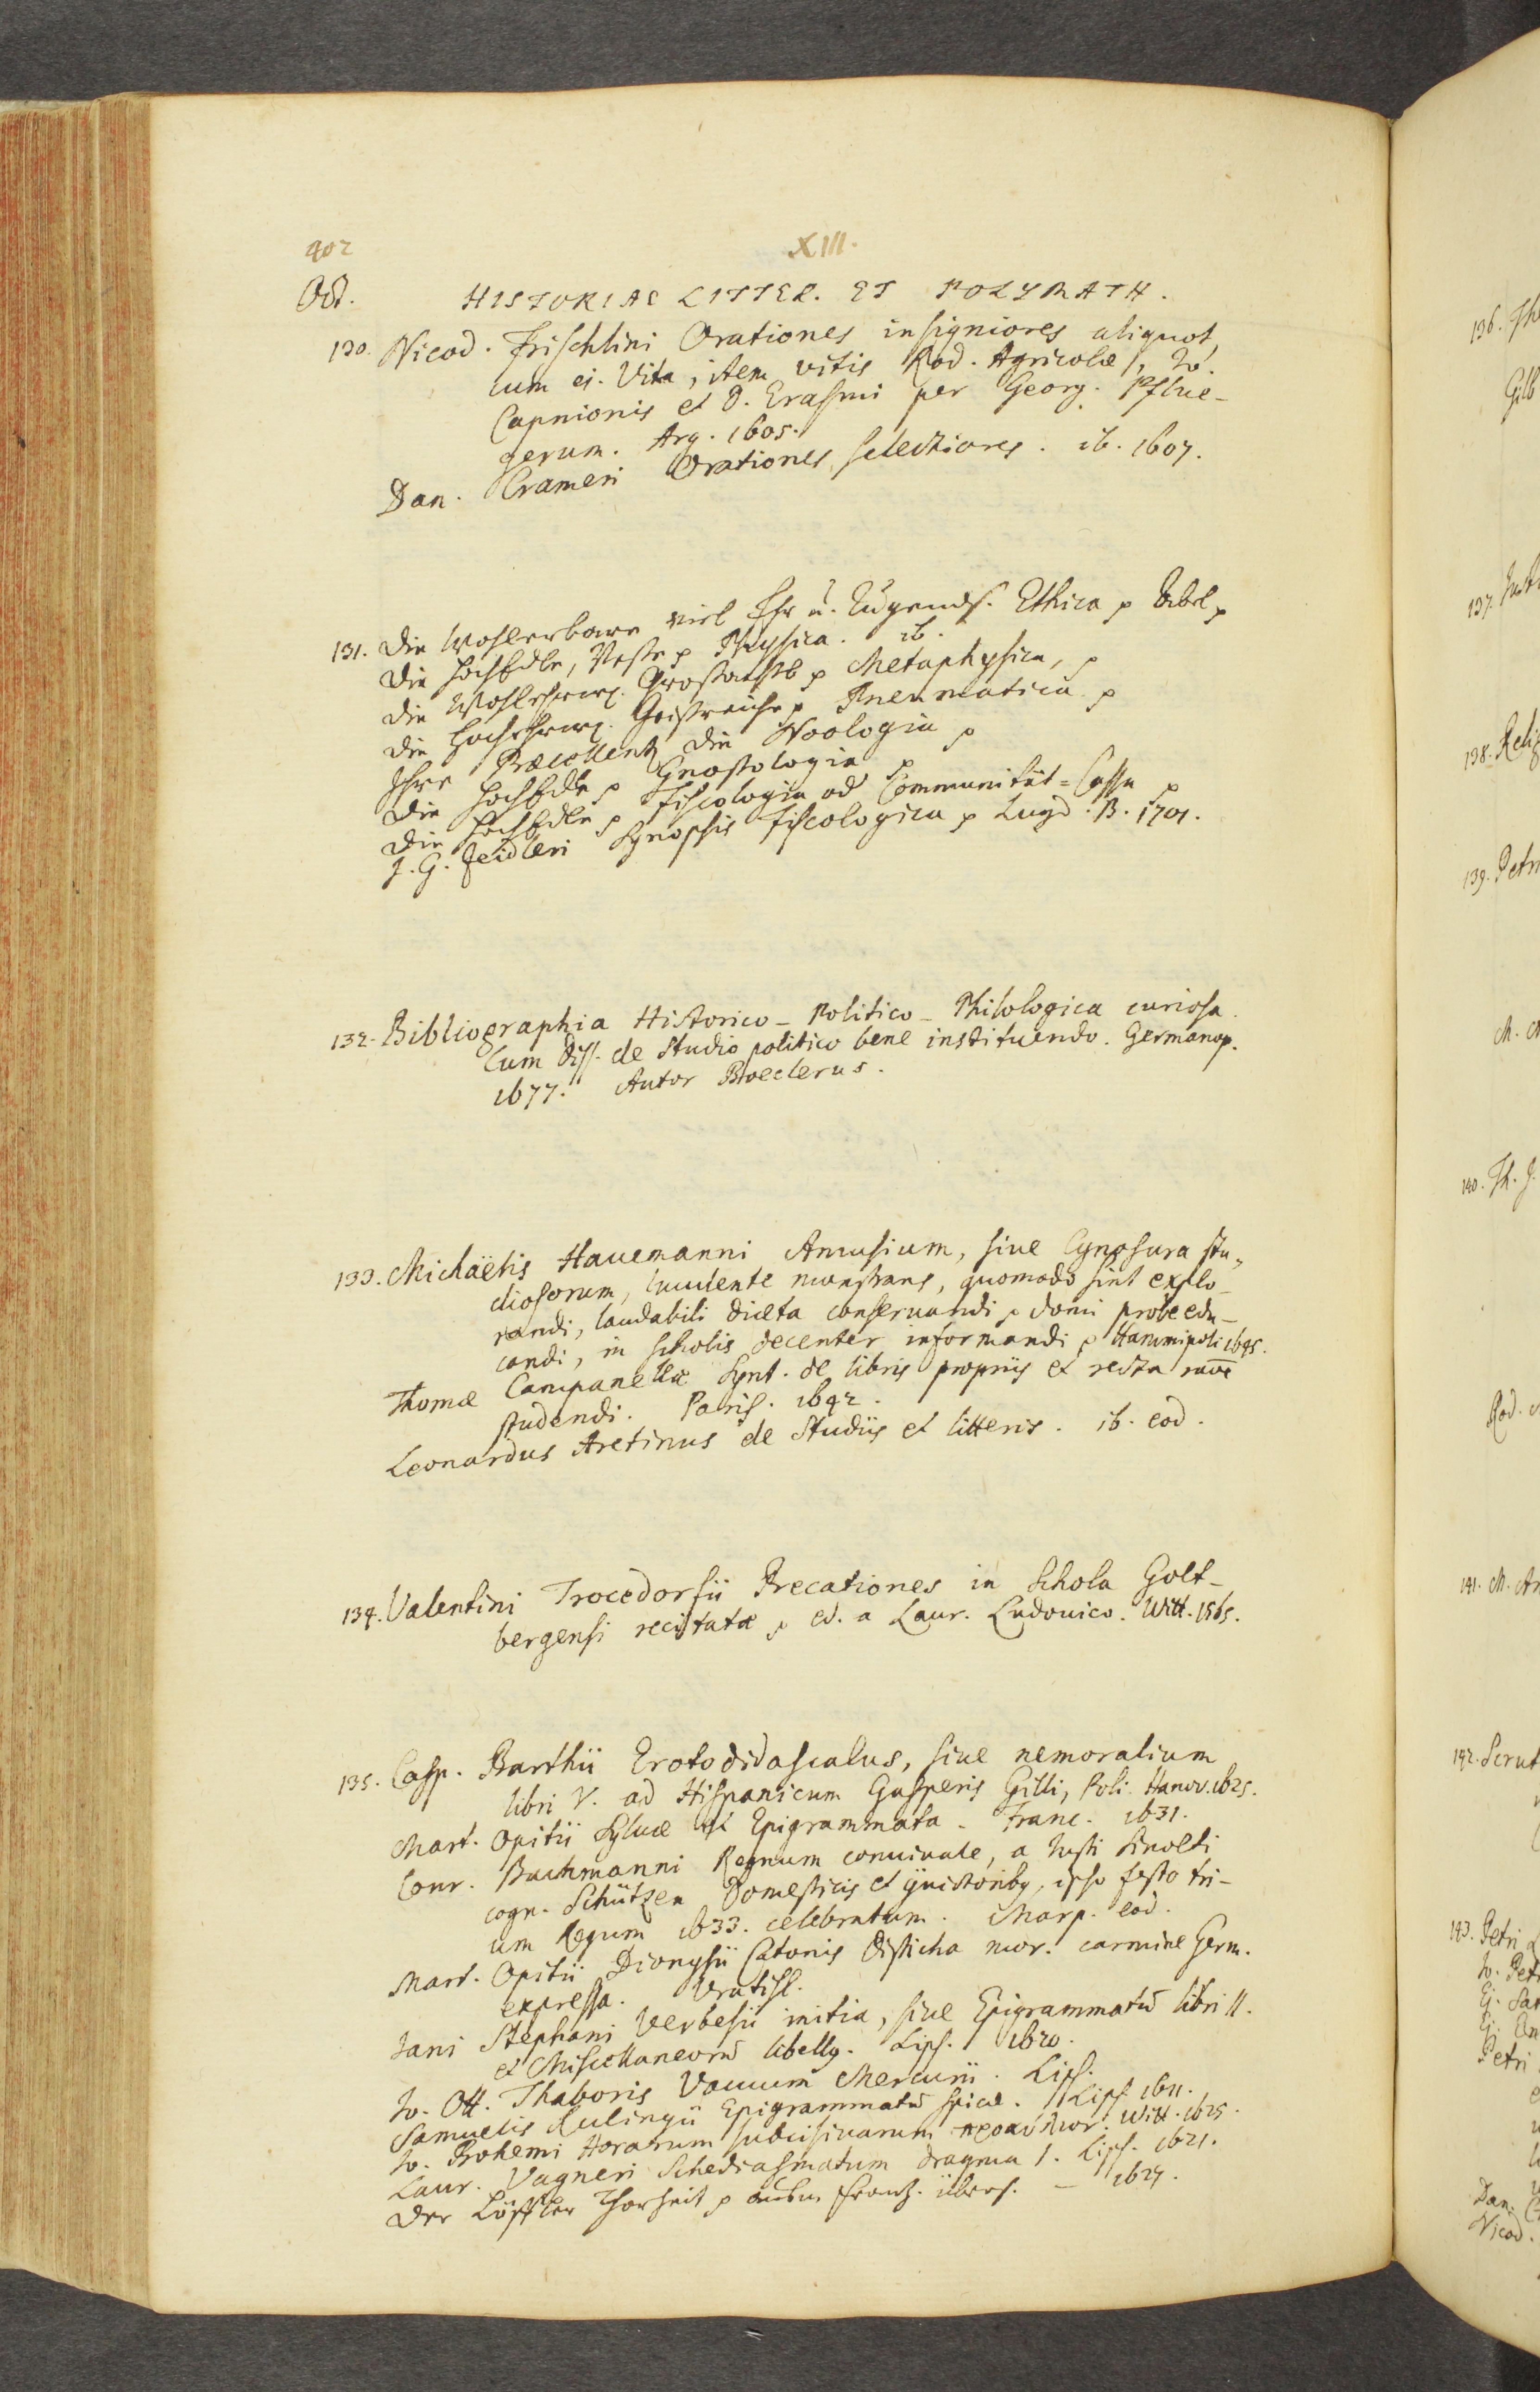 402
XIII.
Oct.
HISTORIAE LITTER. ET POLYMATH.
130. Nicod. Frischlini Orationes insigniores aliquot,
cum ej. Vita, item vitis Rod. Agricolæ, Io.
Capnionis et D. Erasmi per Georg. Pflue-
gerum. Arg. 1605.
Dan. Crameri Orationes selectiores. ib. 1607.
131. Die Wohlerbare viel Ehr u. Tugends. Ethica p
Die HochEdle, Veste p Physica. ib.
Die Wohlehrw. Großachtb p Metaphysica, p
Die Hochehrw. Geistreiche p Pneumatica p
Ihre Præcellentz die Noologia p
Die HochEdle p Gnostologia p
Die HochEdle p Fiscologia od Communität=Cassa p
J. G. Zeidleri Synopsis Fiscologica p Lugd. B. 1701.
132. Bibliographia Historico-Politico-Philologica curiosa.
Cum Diss. de Studio politico bene instituendo. Germanop.
1677. Autor Boeclerus.
133. Michäelis Hauemanni Amusium, siue Cynosura stu-
diosorum, luculente monstrans, quomodo sint explo-
randi, laudabili diæta conseruandi p domi probe edu-
candi, in scholis decenter informandi p Hammipoli 1645.
Thomæ Campanellæ Synt. de libris propriis et recta raōe
studendi. Paris. 1642.
Leonardus Aretinus de Studiis et litteris. ib. eod.
134. Valentini Trocedorfii Precationes in Schola Golt-
bergensi recitatæ p ed. a Laur. Ludouico. Witt. 1565.
135. Casp. Barthii Erotodidascalus, siue nemoralium
libri V. ad Hispanicum Gasperis Gilli, Poli. Hanov. 1625.
Mart. Opitii Syluæ et Epigrammata. Franc. 1631.
Conr. Bachmanni Regnum conuiuale, a Justi Sinolti
cogn. Schützen Domesticis et ipso festo tri-
um Regum 1633. celebratum. Marp. eod.
Mart. Opitii Dionysii Catonis Disticha mor. carmine Germ.
expressa. Vratisl.
Jani Stephani Verbesii initia, siue Epigrammatū libri II.
et Miscellaneorū libellg. Lips. 1620.
Io. Ott. Thaboris Vacuum Mercurii. Lips.
Samuelis Rulingii Epigrammatū spicæ. Lips 1611.
Io. Bohemi Horarum subcisiuarum Witt. 1625.
Laur. Vagneri Schediasmatum dragma I. Lips. 1621.
Der Löffler Thorheit p Frantz. übers. - 1624.
136.
Gilb
137.
138. Relig
139. Petri
140. Th. J.
Rod.
141. M. An
142. Scrut
143. Petri
Io. Petr
Ej.
Ej.
Petri
Dan.
Nicod.